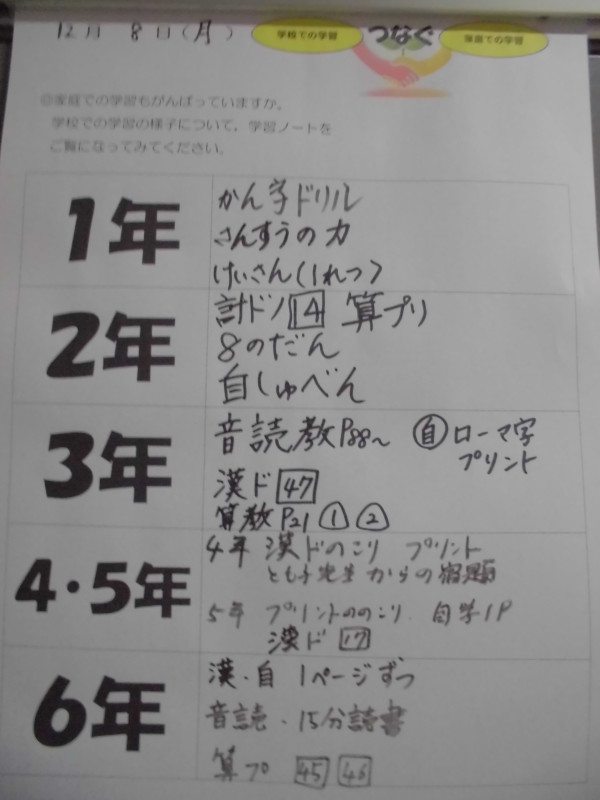 12月 8日(月)
学校での学習 つなぐ 家庭での学習
◎家庭での学習もがんばっていますか。
学校での学習の様子について、学習ノートを
ご覧になってみてください。
1年
かん字ドリル
さんすうの力
けいさん(1れつ)
2年
計ドリ 14 算プリ
8のだん
自しゅべん
3年
音読教P88~ 自 ローマ字
プリント
漢ド 47
算教 P21 ① ②
4・5年
4年 漢ドのこり プリント
とも子先生からの宿題
5年 プリントののこり 自学1P
漢ド 17
6年
漢・自 1ページずつ
音読・15分読書
算プ 45 46